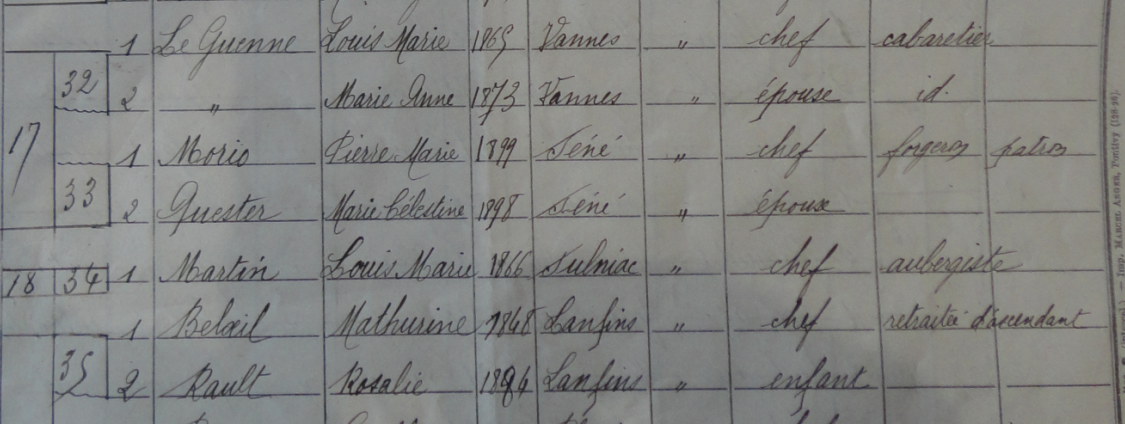 1 Le Guenne Louis Marie 1865 Vannes " chef cabaretier
32 2 " Marie Anne 1873 Vannes " épouse id.
17 1 Morio Pierre Marie 1899 Séné " chef forgeron patron
33 2 Quester Marie Célestine 1898 Séné " épouse
18 34 1 Martin Louis Marie 1866 Sulniac " chef aubergiste
1 Belœil Mathurine 1848 Lanfins " chef retraitée d'ascendant
35 2 Rault Rosalie Lanfins " enfant